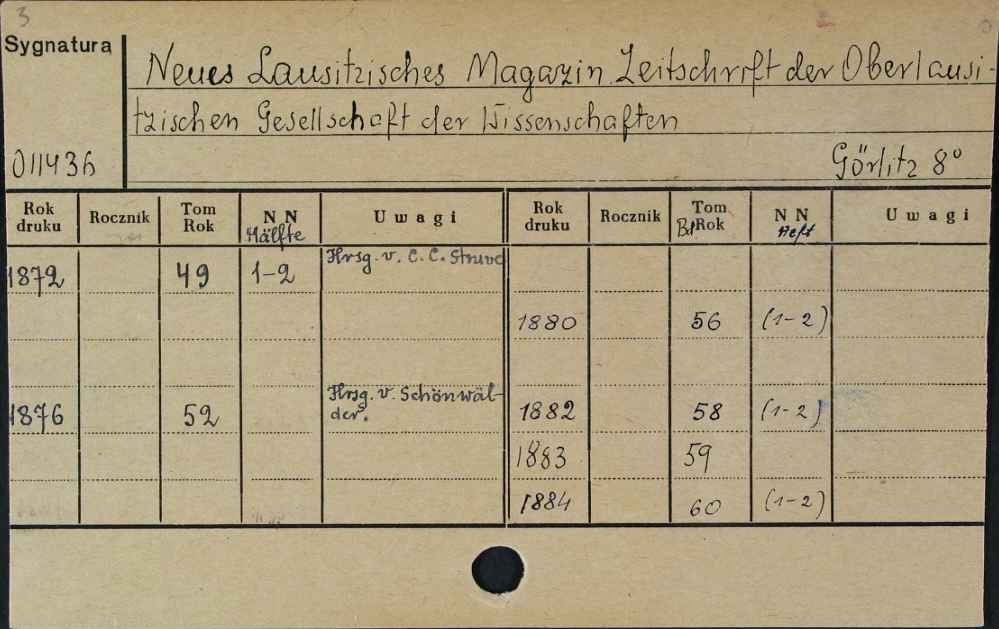 3
Sygnatura
Neues Lausitzisches Magazin Zeitschrift der Oberlausi-
tzischen Gesellschaft der Wissenschaften
011436
Görlitz 8°
Rok druku Rocznik Tom Rok NN Hälfte Uwagi Rok druku Rocznik Tom Bd Rok NN Heft Uwagi
1872 49 1-2 Hrsg. v. C. C. Struve
1880 56 (1-2)
1876 52 Hrsg. v. Schönwäl-
der. 1882 58 (1-2)
1883 59
1884 60 (1-2)